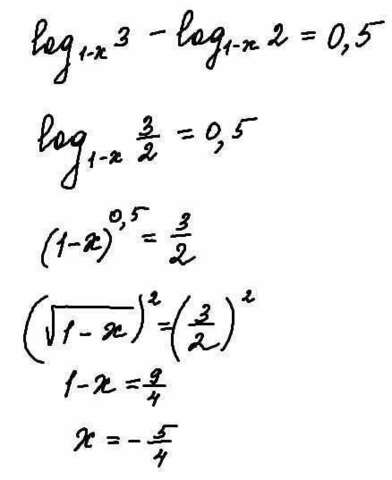 log₁₋ₓ 3 − log₁₋ₓ 2 = 0,5
log₁₋ₓ 3/2 = 0,5
(1−x)^0,5 = 3/2
(√(1−x))² = (3/2)²
1−x = 9/4
x = −5/4